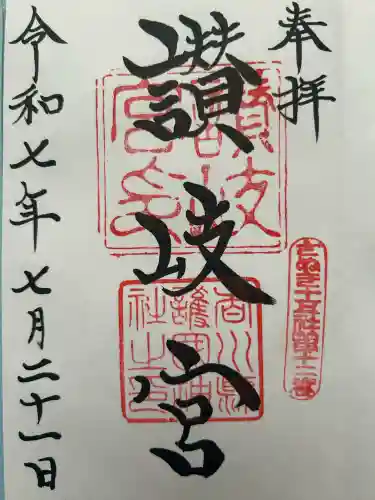 奉拝
讃岐宮
讃岐宮印
香川県護国神社之印
令和七年七月二十一日